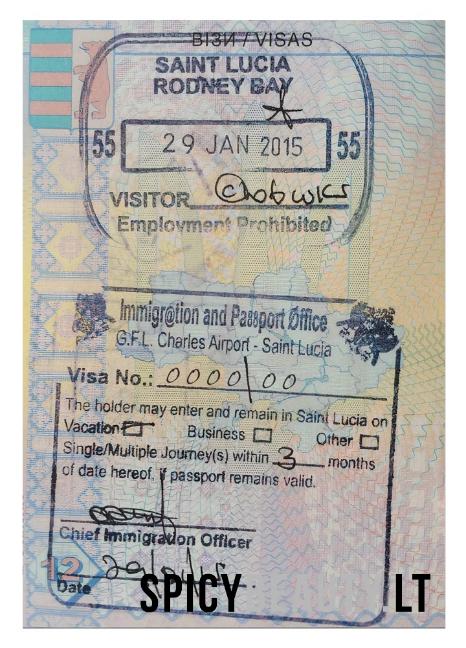 ВІЗИ / VISAS
SAINT LUCIA
RODNEY BAY
55 29 JAN 2015 55
VISITOR
Employment Prohibited
Immigration and Passport Office
G.F.L. Charles Airport - Saint Lucia
Visa No.: 0000/00
The holder may enter and remain in Saint Lucia on
Vacation Business Other
Single/Multiple Journey(s) within 3 months
of date hereof, if passport remains valid.
Chief Immigration Officer
12
Date
SPICY LT